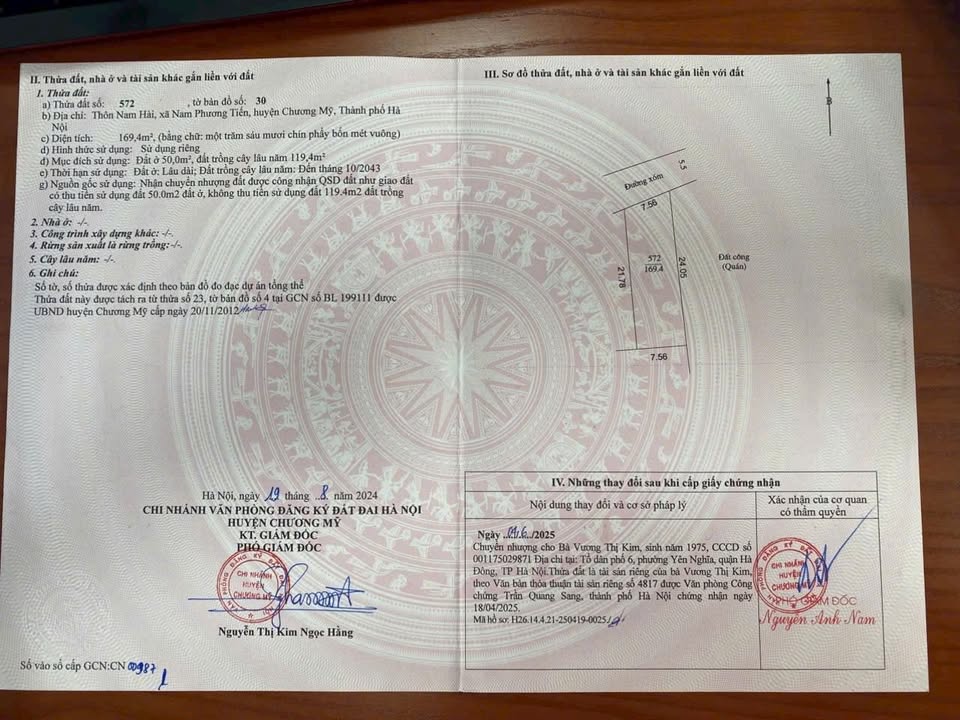 II. Thửa đất, nhà ở và tài sản khác gắn liền với đất
1. Thửa đất:
a) Thửa đất số: 572 , tờ bản đồ số: 30
b) Địa chỉ: Thôn Nam Hài, xã Nam Phương Tiến, huyện Chương Mỹ, Thành phố Hà
Nội
c) Diện tích: 169,4m², (bằng chữ: một trăm sáu mươi chín phẩy bốn mét vuông)
d) Hình thức sử dụng: Sử dụng riêng
đ) Mục đích sử dụng: Đất ở 50,0m², đất trồng cây lâu năm 119,4m²
e) Thời hạn sử dụng: Đất ở: Lâu dài; Đất trồng cây lâu năm: Đến tháng 10/2043
g) Nguồn gốc sử dụng: Nhận chuyển nhượng đất được công nhận QSD đất như giao đất
có thu tiền sử dụng đất 50.0m2 đất ở, không thu tiền sử dụng đất 119.4m2 đất trồng
cây lâu năm.
2. Nhà ở: -/-.
3. Công trình xây dựng khác: -/-.
4. Rừng sản xuất là rừng trồng:-/-.
5. Cây lâu năm: -/-.
6. Ghi chú:
Số tờ, số thửa được xác định theo bản đồ đo đạc dự án tổng thể
Thửa đất này được tách ra từ thửa số 23, tờ bản đồ số 4 tại GCN số BL 199111 được
UBND huyện Chương Mỹ cấp ngày 20/11/2012
Hà Nội, ngày 19 tháng 8 năm 2024
CHI NHÁNH VĂN PHÒNG ĐĂNG KÝ ĐẤT ĐAI HÀ NỘI
HUYỆN CHƯƠNG MỸ
KT. GIÁM ĐỐC
PHÓ GIÁM ĐỐC
CHI NHÁNH
HUYỆN
CHƯƠNG MỸ
Nguyễn Thị Kim Ngọc Hằng
Số vào sổ cấp GCN:CN 00987
III. Sơ đồ thửa đất, nhà ở và tài sản khác gắn liền với đất
B
5.5
Đường xóm
7.56
572
169.4
21.78
24.05
Đất công
(Quán)
7.56
IV. Những thay đổi sau khi cấp giấy chứng nhận
Nội dung thay đổi và cơ sở pháp lý
Xác nhận của cơ quan
có thẩm quyền
Ngày /2025
Chuyển nhượng cho Bà Vương Thị Kim, sinh năm 1975, CCCD số
001175029871 Địa chỉ tại: Tổ dân phố 6, phường Yên Nghĩa, quận Hà
Đông, TP Hà Nội.Thửa đất là tài sản riêng của bà Vương Thị Kim,
theo Văn bản thỏa thuận tài sản riêng số 4817 được Văn phòng Công
chứng Trần Quang Sang, thành phố Hà Nội chứng nhận ngày
18/04/2025.
Mã hồ sơ: H26.14.4.21-250419-0025
CHI NHÁNH
HUYỆN
CHƯƠNG MỸ
PHÓ GIÁM ĐỐC
Nguyễn Anh Nam